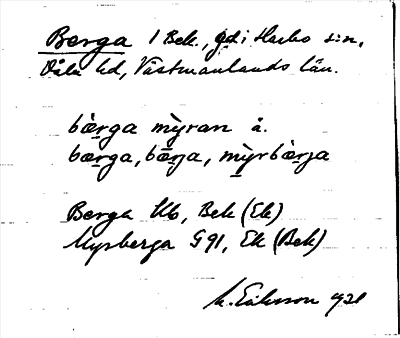 Berga 1 Bek., gd i Harbo s:n,
Våla hd, Västmanlands län.
bærga mỳran å.
bærga, bærja, mỳrbærja
Berga Kb, Bek (Ek)
Myrberga G 91, Ek (Bek)
M. Eriksson 1921